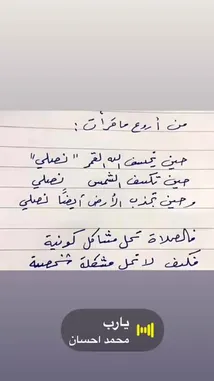 من أروع ما قرأت :
حين يخسف الله القمر "نصلي"
حين تكسف الشمس نصلي
وحين تجدب الأرض أيضًا نصلي
فالصلاة تحل مشاكل كونية
فكيف لا تحل مشكلة شخصية
يارب
محمد احسان